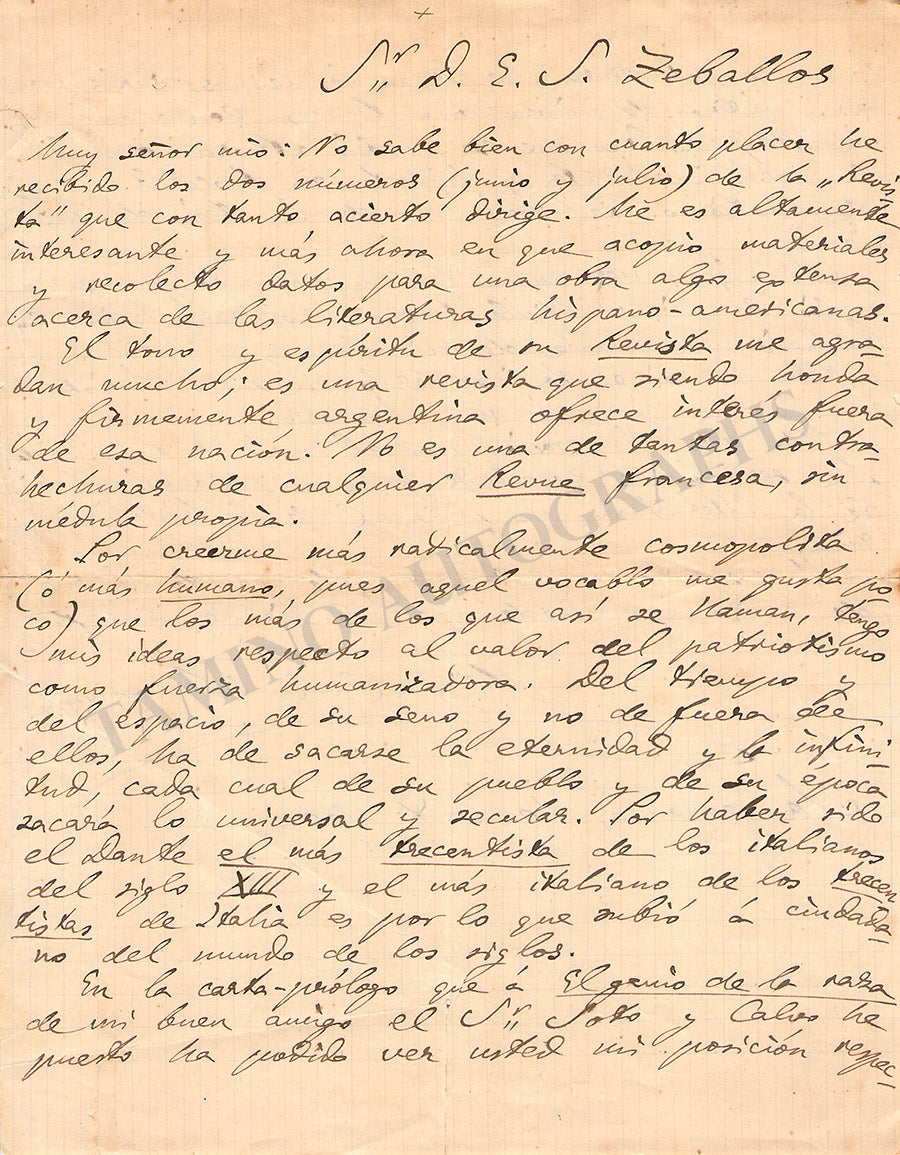 Sr. D. E. S. Zeballos
Muy señor mío: No sabe bien con cuanto placer he
recibido los dos números (junio y julio) de la „Revis-
ta" que con tanto acierto dirige. Me es altamente
interesante y más ahora en que acopio materiales
y recolecto datos para una obra algo extensa
acerca de las literaturas hispano-americanas.
El tono y espíritu de su Revista me agra-
dan mucho; es una revista que siendo honda
y firmemente argentina ofrece interés fuera
de esa nación. No es una de tantas contra-
hechuras de cualquier Revue francesa, sin
médula propia.
Por creerme más radicalmente cosmopolita
(ó más humano, pues aquel vocablo me gusta po-
co) que los más de los que así se llaman, tengo
mis ideas respecto al valor del patriotismo
como fuerza humanizadora. Del tiempo y
del espacio, de su seno y no de fuera de
ellos, ha de sacarse la eternidad y la infini-
tud, cada cual de su pueblo y de su época
sacará lo universal y secular. Por haber sido
el Dante el más trecentista de los italianos
del siglo XIII y el más italiano de los trecen
tistas de Italia es por lo que subió á ciudada-
no del mundo de los siglos.
En la carta-prólogo que á El genio de la raza
de mi buen amigo el Sr. Soto y Calvo he
puesto ha podido ver usted mi posición respec-
TAMINO AUTOGRAPHS